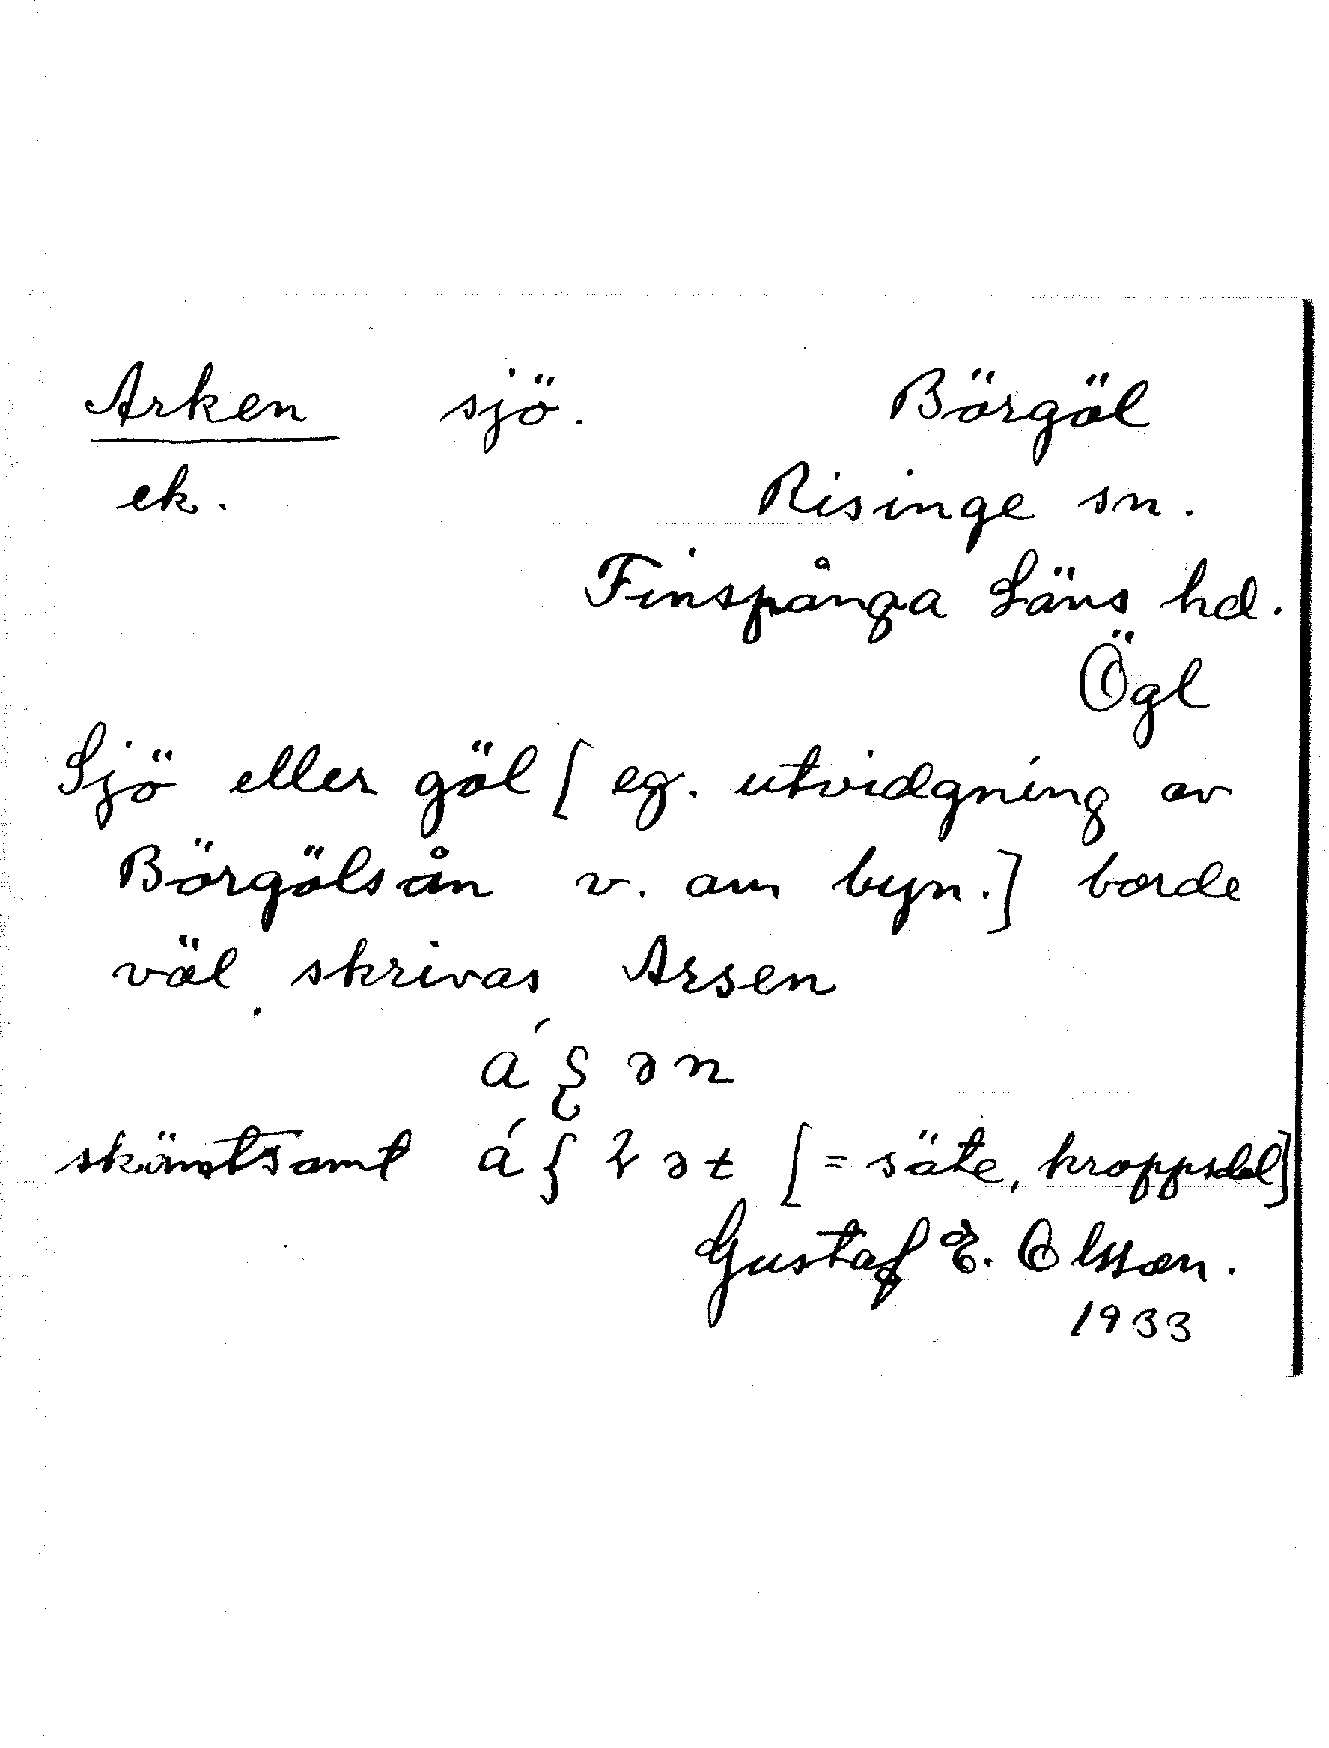 Arken sjö. Börgöl
ek. Risinge sn.
Finspånga Läns hd.
Ögl
Sjö eller göl [eg. utvidgning av
Börgölsån v. om byn.] borde
väl skrivas Arsen
skämtsamt [= säte, kroppsdel]
Gustaf E. Olsson.
1933